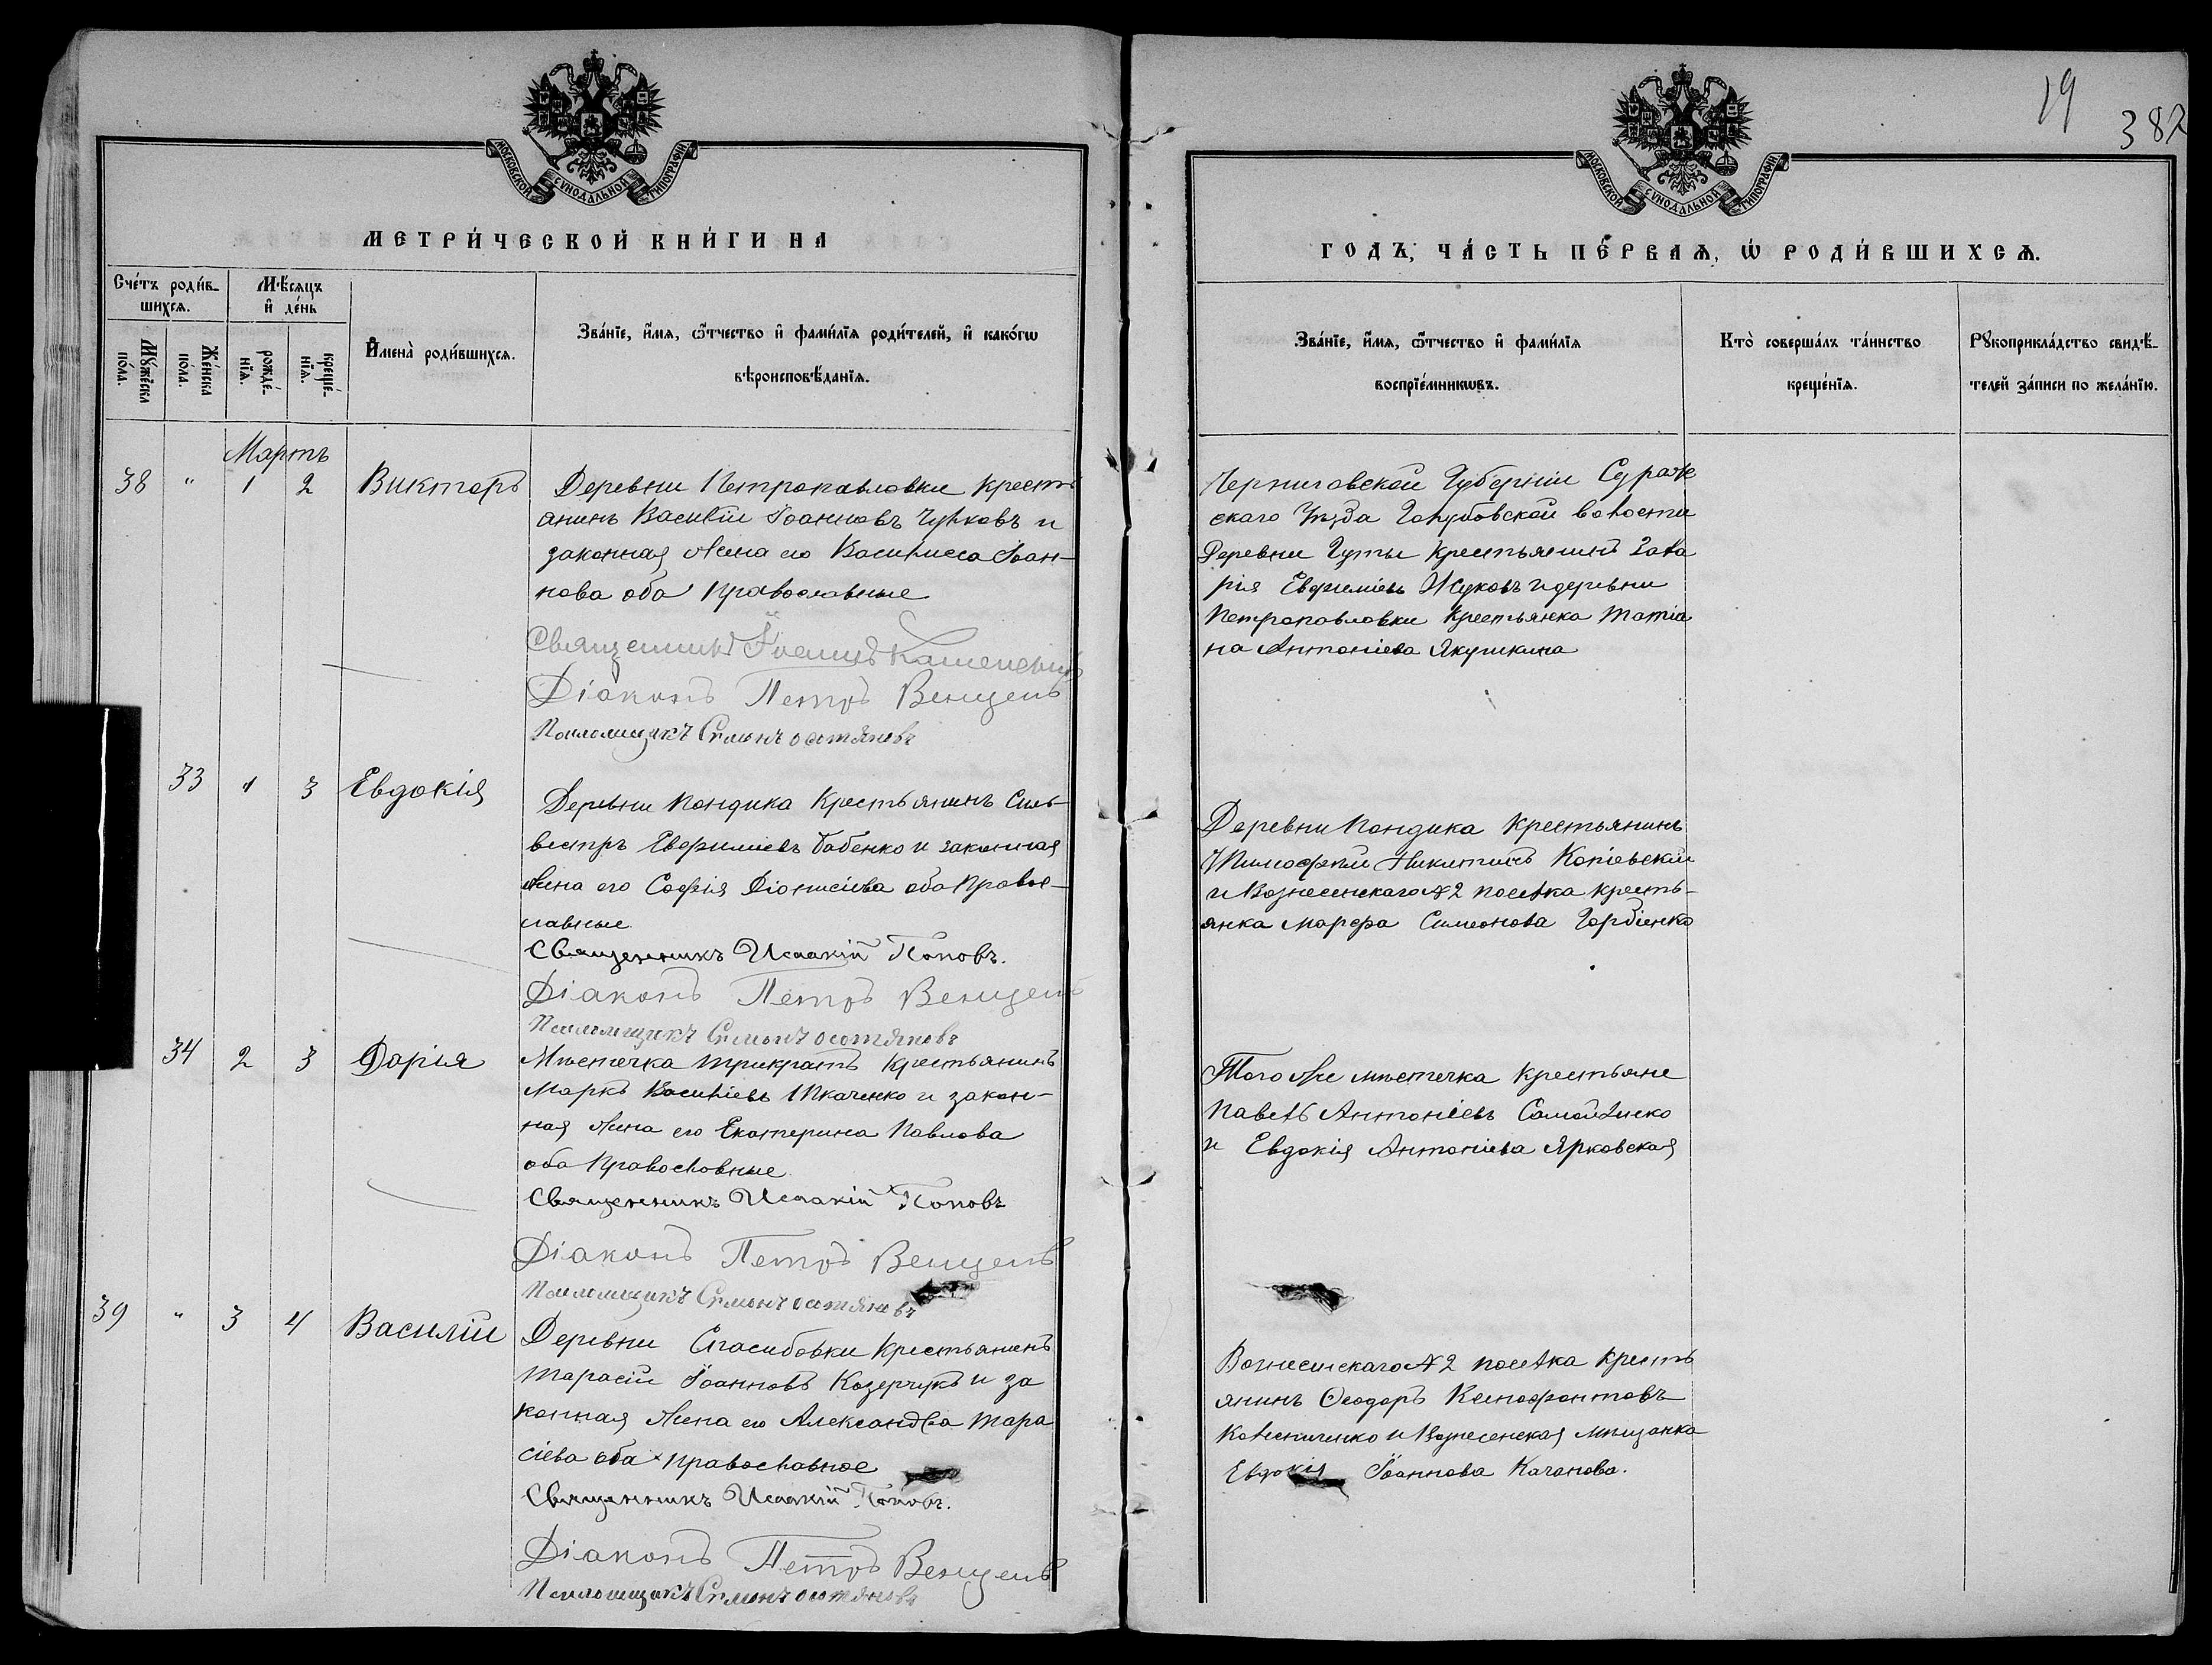 19
382
МОСКОВСКОЙ СУНОДАЛЬНОЙ ТИПОГРАФІИ
МЕТРИ́ЧЕСКОЙ КНИ́ГИ НА
Сче́тъ роди́в-
шихсѧ.
Мѣ́сѧцъ
и҆ де́нь
Мꙋ́жеска
по́ла.
Же́нска
по́ла.
рожде́-
нїѧ.
креще́-
нїѧ.
И҆мена̀ роди́вшихсѧ.
Зва́нїе, и҆́мѧ, ѻ҆́тчество и҆ фами́лїѧ роди́телей, и҆ како́гѡ
вѣроисповѣ́данїѧ.
Мартъ
38 " 1 2 Викторъ
Деревни Петропавловки крестъ
янинъ Василій Іоанновъ Чубковъ и
законная жена его Василисса Іоан-
нова оба православные
Священникъ Іоаннъ Каменскій
Діаконъ Петръ Венцель
Псаломщикъ Симонъ Остяновъ
33 " 3 Евдокія
Деревни Кондика Крестьянинъ Силь-
вестръ Евфиміевъ Бабенко и законная
жена его Софія Діонисіева оба Право-
славные
Священникъ Исаакій Поповъ.
Діаконъ Петръ Венцель
Псаломщикъ Симонъ Остяновъ
34 2 3 Дарія
Мѣстечка Трикратъ Крестьянинъ
Маркъ Васильевъ Ткаченко и закон-
ная жена его Екатерина Павлова
оба Православные
Священникъ Исаакій Поповъ
Діаконъ Петръ Венцель
Псаломщикъ Симонъ Остяновъ
39 " 3 4 Василій
Деревни Спасибовки Крестьянинъ
Тарасій Іоанновъ Козерчукъ и за
конная жена его Александра Тара
сіева оба православное
Священникъ Исаакій Поповъ.
Діаконъ Петръ Венцель
Псаломщикъ Симонъ Остяновъ
МОСКОВСКОЙ СУНОДАЛЬНОЙ ТИПОГРАФІИ
ГОДЪ, ЧА́СТЬ ПЕ́РВАѦ, Ѡ РОДИ́ВШИХСѦ.
Зва́нїе, и҆́мѧ, ѻ҆́тчество и҆ фами́лїѧ
воспрїе́мникѡвъ.
Кто̀ соверша́лъ та́инство
креще́нїѧ.
Рꙋкоприкла́дство свидѣ́-
телей за́писи по жела́нїю.
Черниговской Губерніи Сураж
скаго Уѣзда Голубовской волости
Деревни Гуты крестьянинъ Заха
рія Евфиміевъ Жуковъ и деревни
Петропавловки крестьянка Татіа
на Антоніева Якушкина
Деревни Кондика крестьянинъ
Тимофей Никитинъ Копіевскій
и Вознесенскаго №2 поселка кресть-
янка Марфа Симеонова Горбенко
Того же мѣстечка Крестьяне
Павелъ Антоніевъ Самойленко
и Евдокія Антоніева Ярковская
Вознесенскаго №2 поселка кресть
янинъ Ѳеодоръ Ксенофонтовъ
Колесниченко и Вознесенская мѣщанка
Евдокія Іоаннова Качанова.